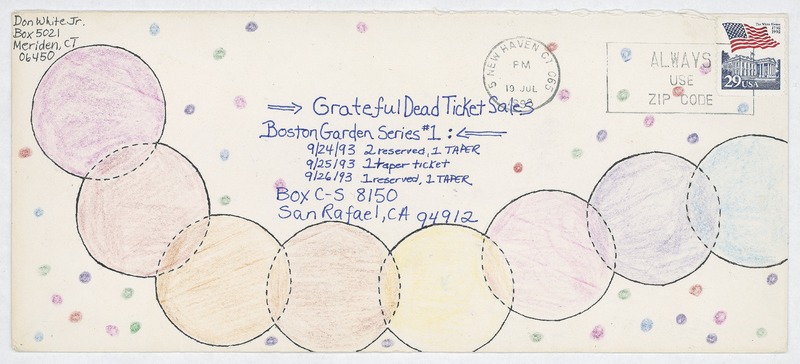 Don White Jr.
Box 5021
Meriden, CT
06450
NEW HAVEN CT 065
PM
19 JUL
1993
ALWAYS
USE
ZIP CODE
The White House
29 USA
⇒ Grateful Dead Ticket Sales
Boston Garden Series #1: ⇐
9/24/93 2 reserved, 1 TAPER
9/25/93 1 taper ticket
9/26/93 1 reserved, 1 TAPER
Box C-S 8150
San Rafael, CA 94912